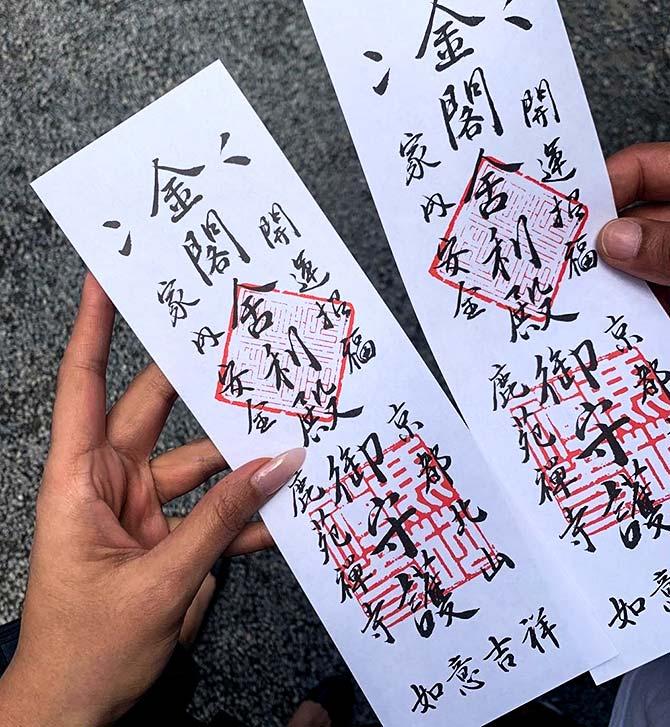 開運招福
金閣舎利殿御守護
家内安全
京都北山
鹿苑禅寺
如意吉祥
開運招福
金閣舎利殿御守護
家内安全
京都
鹿苑禅寺
如意